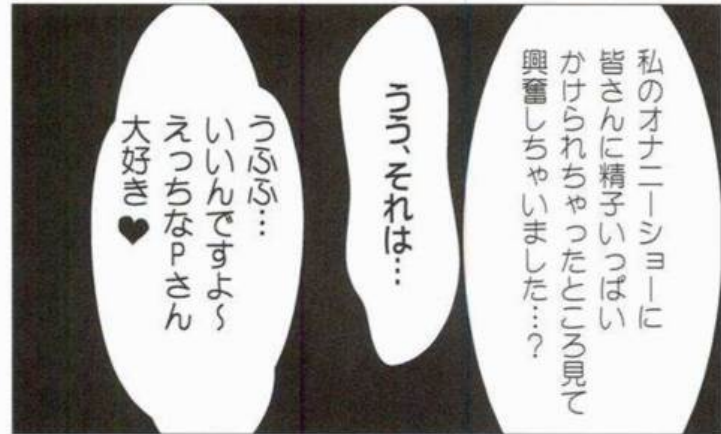 私のオナニーショーに
皆さんに精子いっぱい
かけられちゃったところ見て
興奮しちゃいました…?
うう、それは…
うふふ…
いいんですよ～
えっちなPさん
大好き♥